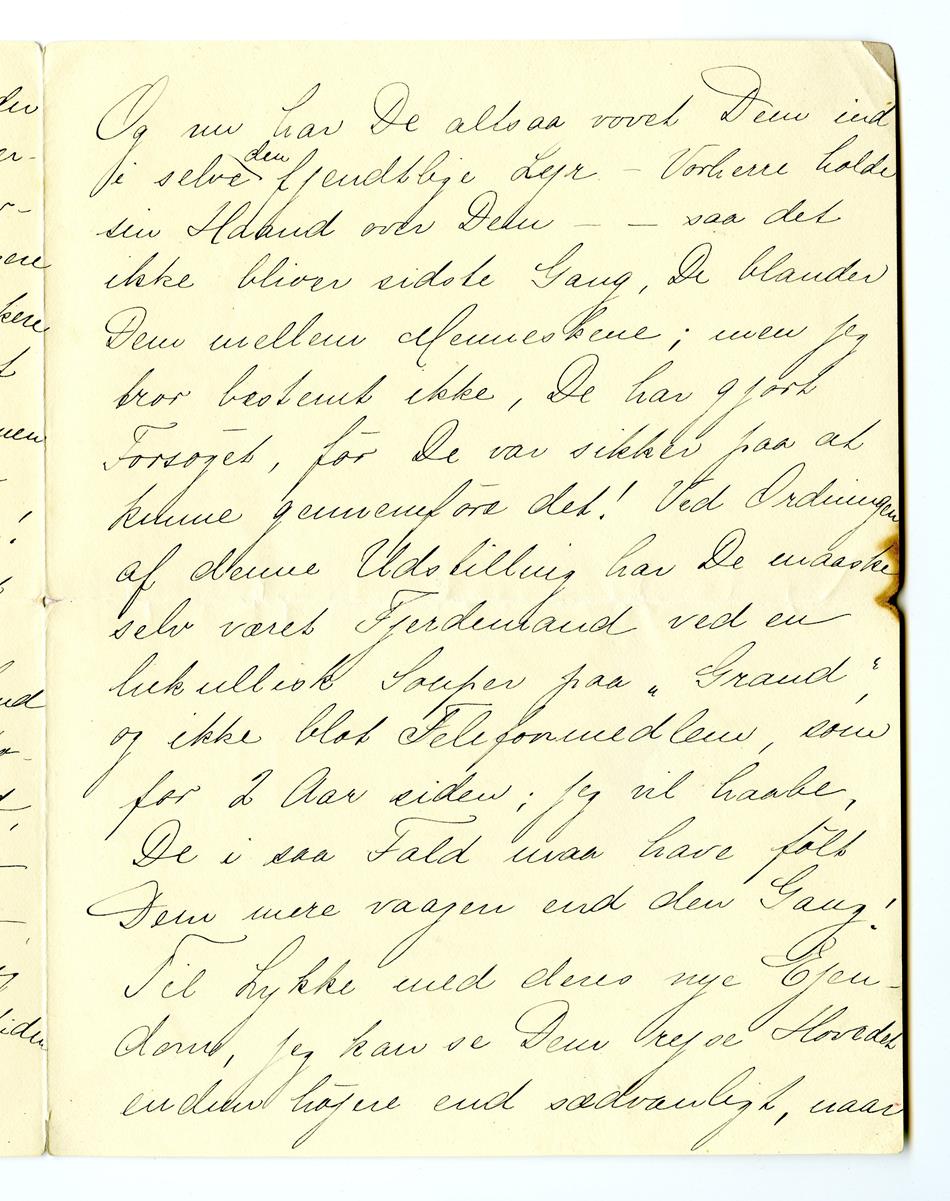 Og nu har De altsaa vovet Dem ind
i selve den fjendtlige Lejr - Vorherre holde
sin Haand over Dem - - saa det
ikke bliver sidste Gang, De blander
Dem mellem Menneskene; men jeg
tror bestemt ikke, De har gjort
Forsøget, før De var sikker paa at
kunne gennemføre det! Ved Ordningen
af denne Udstilling har De maaske
selv været Fjerdemand ved en
lukullisk Souper paa „Grand“,
og ikke blot Telefonmedlem, som
for 2 Aar siden; jeg vil haabe,
De i saa Fald maa have følt
Dem mere vaagen end den Gang!
Til Lykke med deres nye Ejen-
dom, jeg kan se Dem rejse Hovedet
endnu højere end sædvanligt, naar